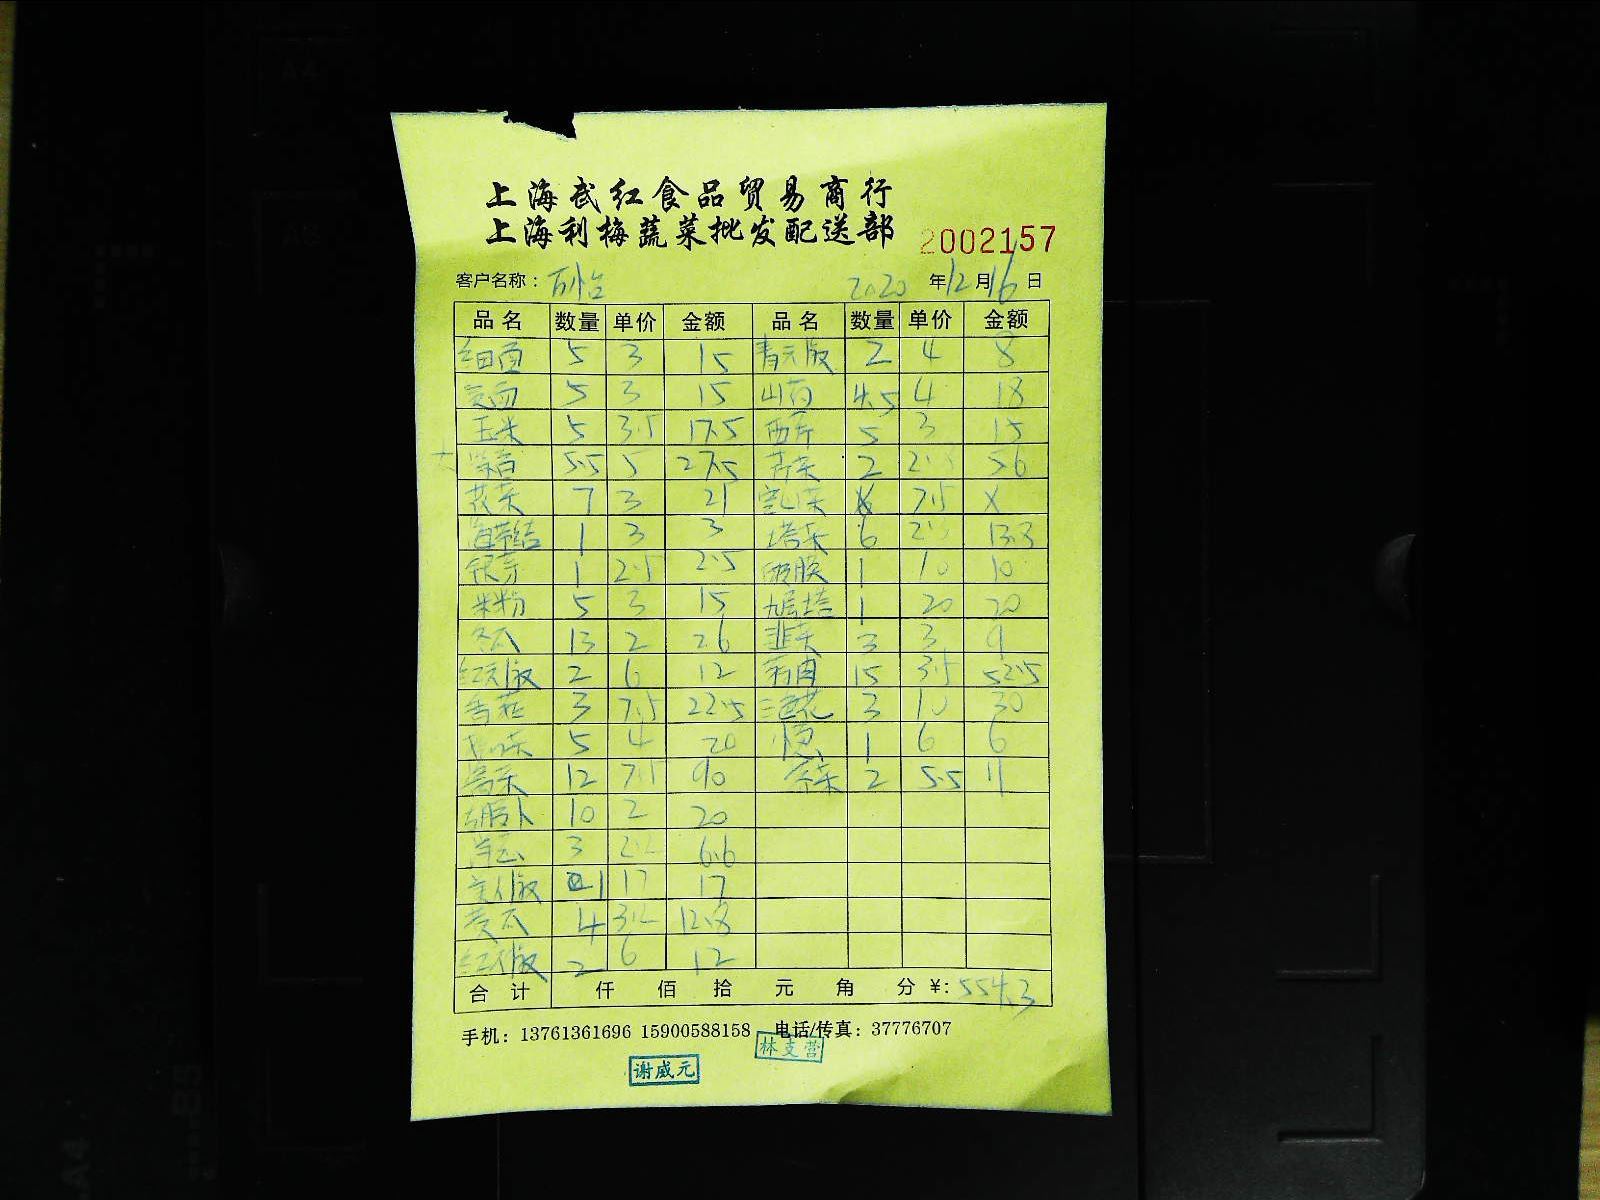 上海武红食品贸易商行
上海利梅蔬菜批发配送部
2002157
客户名称： 2020 年12月16日
品名 数量 单价 金额 品名 数量 单价 金额
细面 5 3 15 2 4 8
5 3 15 山药 4.5 4 18
玉米 5 3.5 17.5 西芹 5 3 15
5.5 5 27.5 2 56
菠菜 7 3 21 7.5 X
海带结 1 3 3 塔菜 6 13.3
银芽 1 2.5 2.5 1 10 10
米粉 5 3 15 九层塔 1 20 20
冬瓜 13 2 26 韭菜 3 3 9
2 6 12 15 3.5 52.5
香菇 3 7.5 22.5 3 10 30
5 4 20 1 6 6
12 7.5 90 2 5.5 11
10 2 20
3 2.2 6.6
1 17 17
黄瓜 4 3.2 12.8
2 6 12
合计 仟 佰 拾 元 角 分 ¥: 554.3
手机：13761361696 15900588158 电话/传真：37776707
林支营
谢威元